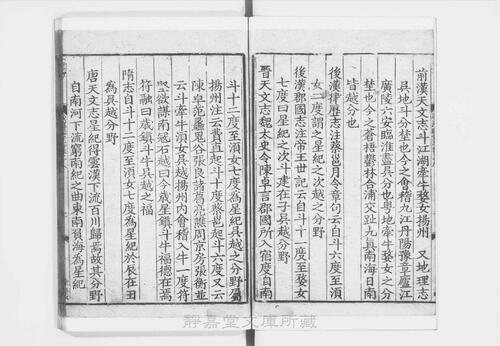 前漢天文志斗江湖牽牛婺女揚州　又地理志
吳地斗分埜也今之會稽九江丹陽豫章廬江
廣陵六安臨淮盡吳分也粤地牽牛婺女之分
埜也今之蒼梧鬱林合浦交趾九真南海日南
皆越分也
後漢律歷志注蔡邕月令章句云自斗六度至湏
女二度謂之星紀之次越之分野
後漢郡國志注帝王世記云自斗十一度至婺女
七度曰星紀之次斗建在子吳越分野
晋天文志魏太史令陳卓言郡國所入宿度自南
斗十二度至湏女七度為星紀吳越之分野屬
揚州注云費直起斗十度蔡邕起斗六度又云
陳卓范蠡鬼谷張良諸葛亮譙周京房張衡並
云斗牽牛湏女吳越揚州内會稽入牛一度符
堅欲謀南冦石越曰今歳星鎮斗牛福德在焉
符融曰歳鎮斗牛吳越之福
隋志自斗十二度至湏女七度為星紀於辰在丑
為吳越分野
唐天文志星紀得雲漢下流百川歸焉故其分野
自南河下流窮南紀之曲東南負海為星紀
靜嘉堂文庫所藏